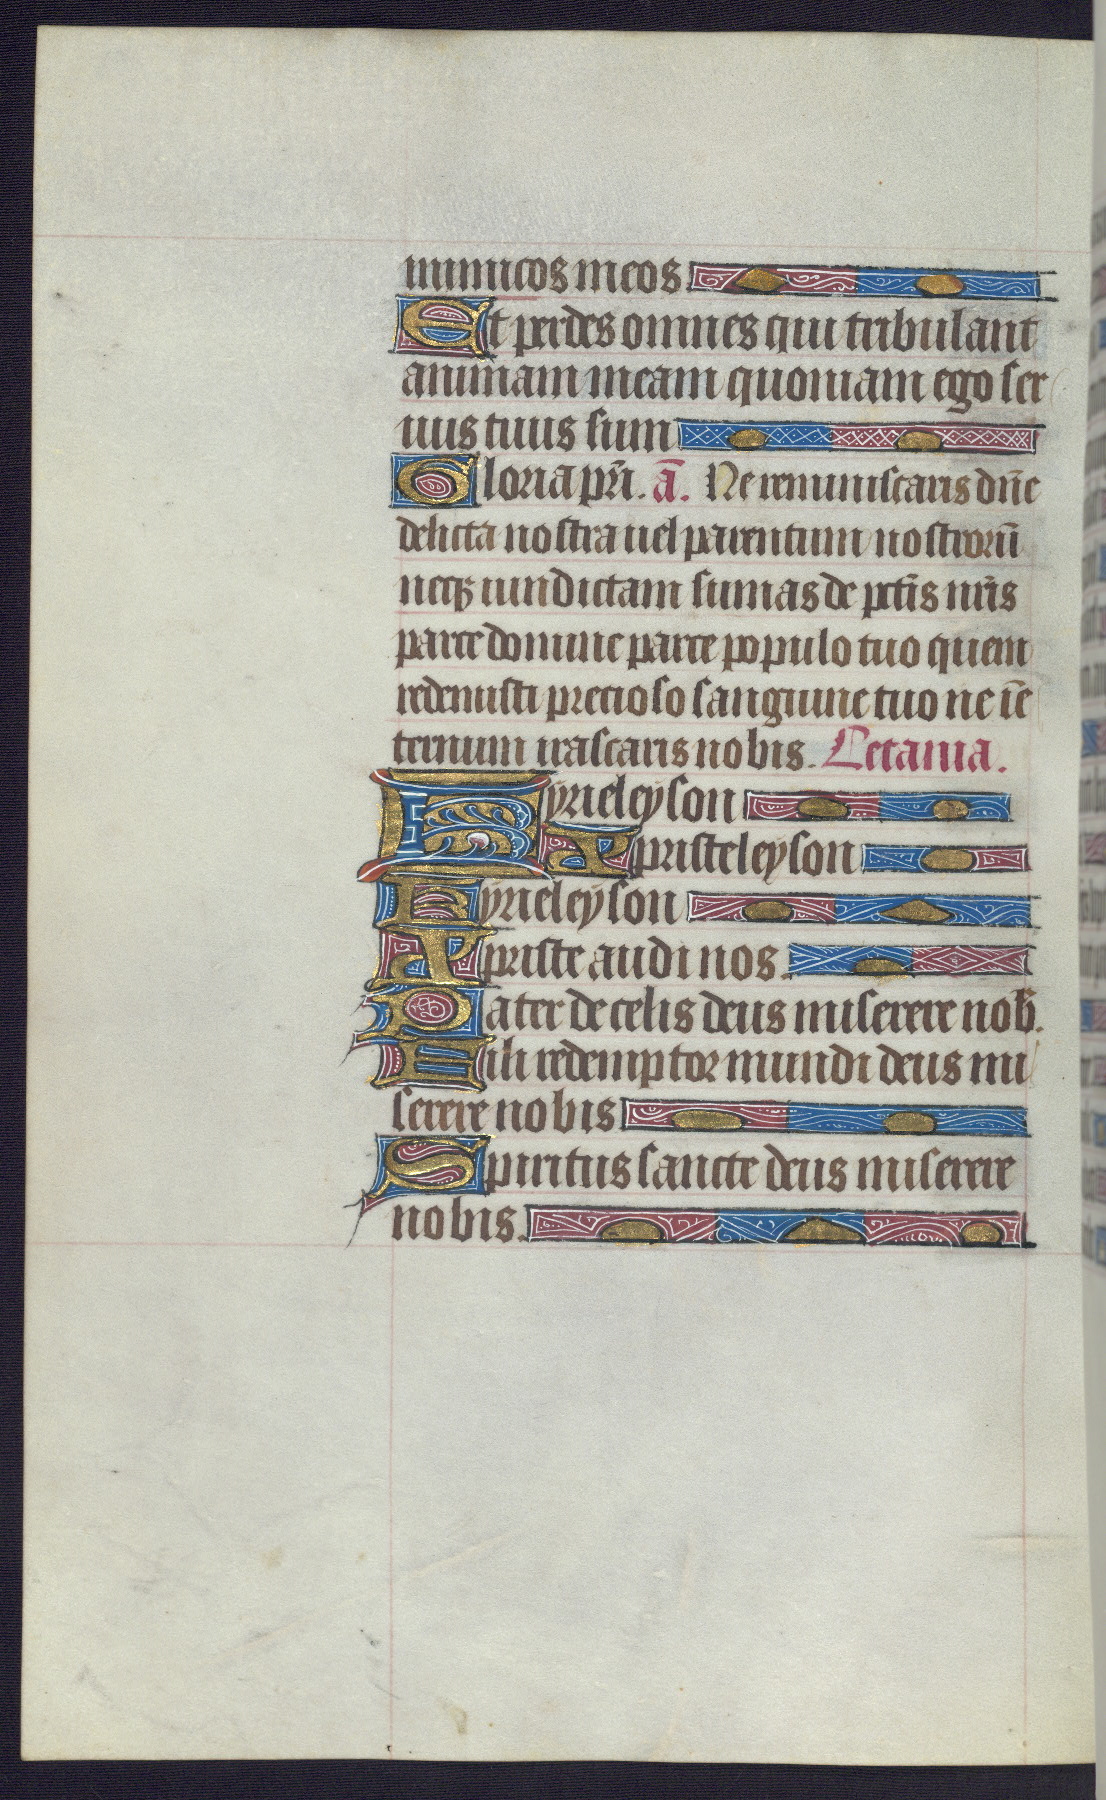 inimicos meos
Et perdes omnes qui tribulant
animam meam quoniam ego ser
uus tuus sum
Gloria pr̃i. ã. Ne reminiscaris dñe
delicta nostra uel parentum nostrorũ
neqꝫ uindictam sumas de pctĩs nr̃is
parce domine parce populo tuo quem
redemisti precioso sanguine tuo ne ĩe
ternum irascaris nobis. Letania.
Kyrieleyson
Xpristeleyson
Kyrieleyson
Xpriste audi nos.
Pater de celis deus miserere nob̃.
Fili redemptor mundi deus mi
serere nobis
Spiritus sancte deus miserere
nobis.